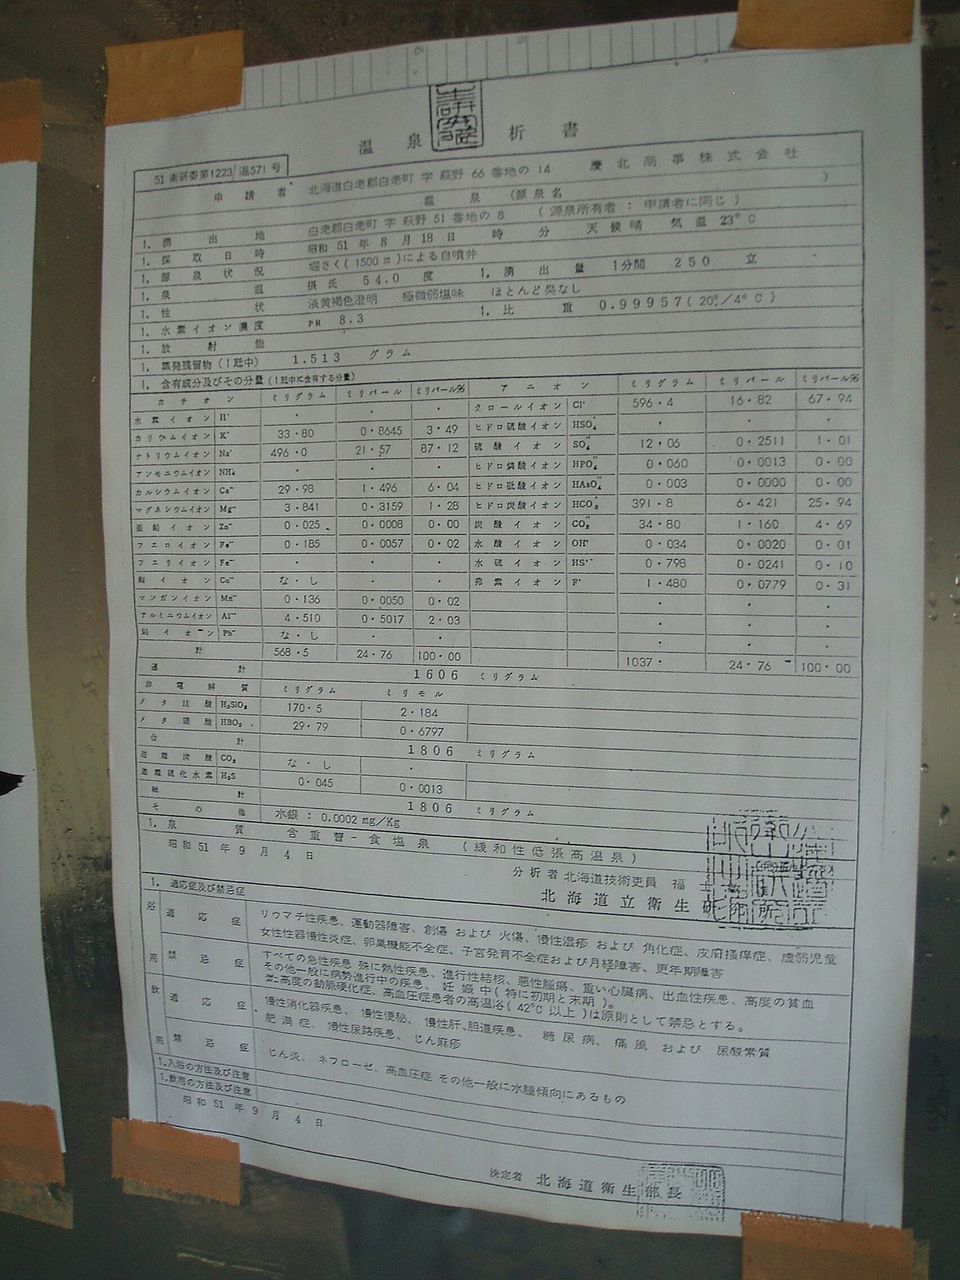 温泉 析書
51 衛研委第1223 温571号
申請者 北海道白老郡白老町 字 萩野 66 番地の 14 慶北商事株式会社
温泉 (源泉名 )
1. 湧出地 白老郡白老町 字 萩野 51 番地の 8 (源泉所有者 : 申請者に同じ)
1. 採取日時 昭和 51 年 8 月 18 日 時 分 天候晴 気温 23°C
1. 源泉状況 堀さく(1500m)による自噴井
1. 泉温 摂氏 54.0 度 1. 湧出量 1分間 250 立
1. 性状 淡黄褐色澄明 極微弱塩味 ほとんど臭なし
1. 水素イオン濃度 PH 8.3 1. 比重 0.99957(20°/4°C)
1. 放射能
1. 蒸発残留物(1瓩中) 1.513 グラム
1. 含有成分及びその分量(1瓩中に含有する分量)
カチオン ミリグラム ミリバール ミリバール% アニオン ミリグラム ミリバール ミリバール%
水素イオン H・ ・ ・ ・ クロールイオン Cl' 596・4 16・82 67・94
カリウムイオン K・ 33・80 0・8645 3・49 ヒドロ硫酸イオン HSO4' ・ ・ ・
ナトリウムイオン Na・ 496・0 21・57 87・12 硫酸イオン SO4'' 12・06 0・2511 1・01
アンモニウムイオン NH4 ・ ・ ・ ヒドロ燐酸イオン HPO4'' 0・060 0・0013 0・00
カルシウムイオン Ca・・ 29・98 1・496 6・04 ヒドロ砒酸イオン HAsO4'' 0・003 0・0000 0・00
マグネシウムイオン Mg・・ 3・841 0・3159 1・28 ヒドロ炭酸イオン HCO3' 391・8 6・421 25・94
亜鉛イオン Zn・・ 0・025 0・0008 0・00 炭酸イオン CO3'' 34・80 1・160 4・69
フエロイオン Fe・・ 0・185 0・0057 0・02 水酸イオン OH' 0・034 0・0020 0・01
フエリイオン Fe・・・ ・ ・ ・ 水硫イオン HS' 0・798 0・0241 0・10
銅イオン Cu・・ なし ・ ・ 弗素イオン F' 1・480 0・0779 0・31
マンガンイオン Mn・・ 0・136 0・0050 0・02 ・ ・ ・
アルミニウムイオン Al・・・ 4・510 0・5017 2・03 ・ ・ ・
鉛イオン Pb・・ なし ・ ・ ・ ・ ・
計 568・5 24・76 100・00 1037・ 24・76 100・00
通計 1606 ミリグラム
非電解質 ミリグラム ミリモル
メタ珪酸 H2SiO3 170・5 2・184
メタ硼酸 HBO2 29・79 0・6797
合計 1806 ミリグラム
遊離炭酸 CO2 なし ・
遊離硫化水素 H2S 0・045 0・0013
総計 1806 ミリグラム
その他 水銀 : 0.0002 mg/Kg
1. 泉質 含重曹-食塩泉 (緩和性低張高温泉)
昭和 51 年 9 月 4 日
分析者 北海道技術吏員 福
北海道立衛生研究所
1. 適応症及び禁忌症
浴用
適応症 リウマチ性疾患、運動器障害、創傷 および 火傷、慢性湿疹 および 角化症、皮膚掻痒症、虚弱児童
女性性器慢性炎症、卵巣機能不全症、子宮発育不全症および月経障害、更年期障害
禁忌症 すべての急性疾患 殊に熱性疾患、進行性結核、悪性腫瘍、重い心臓病、出血性疾患、高度の貧血
その他一般に病勢進行中の疾患、妊娠中(特に初期と末期)。
また高度の動脈硬化症、高血圧症患者の高温浴(42°C以上)は原則として禁忌とする。
飲用
適応症 慢性消化器疾患、慢性便秘、慢性肝、胆道疾患、糖尿病、痛風 および 尿酸素質
肥満症、慢性尿路疾患、じん麻疹
禁忌症 じん炎、ネフローゼ、高血圧症 その他一般に水腫傾向にあるもの
1.入浴の方法及び注意
1.飲用の方法及び注意
昭和 51 年 9 月 4 日
決定者 北海道衛生部長